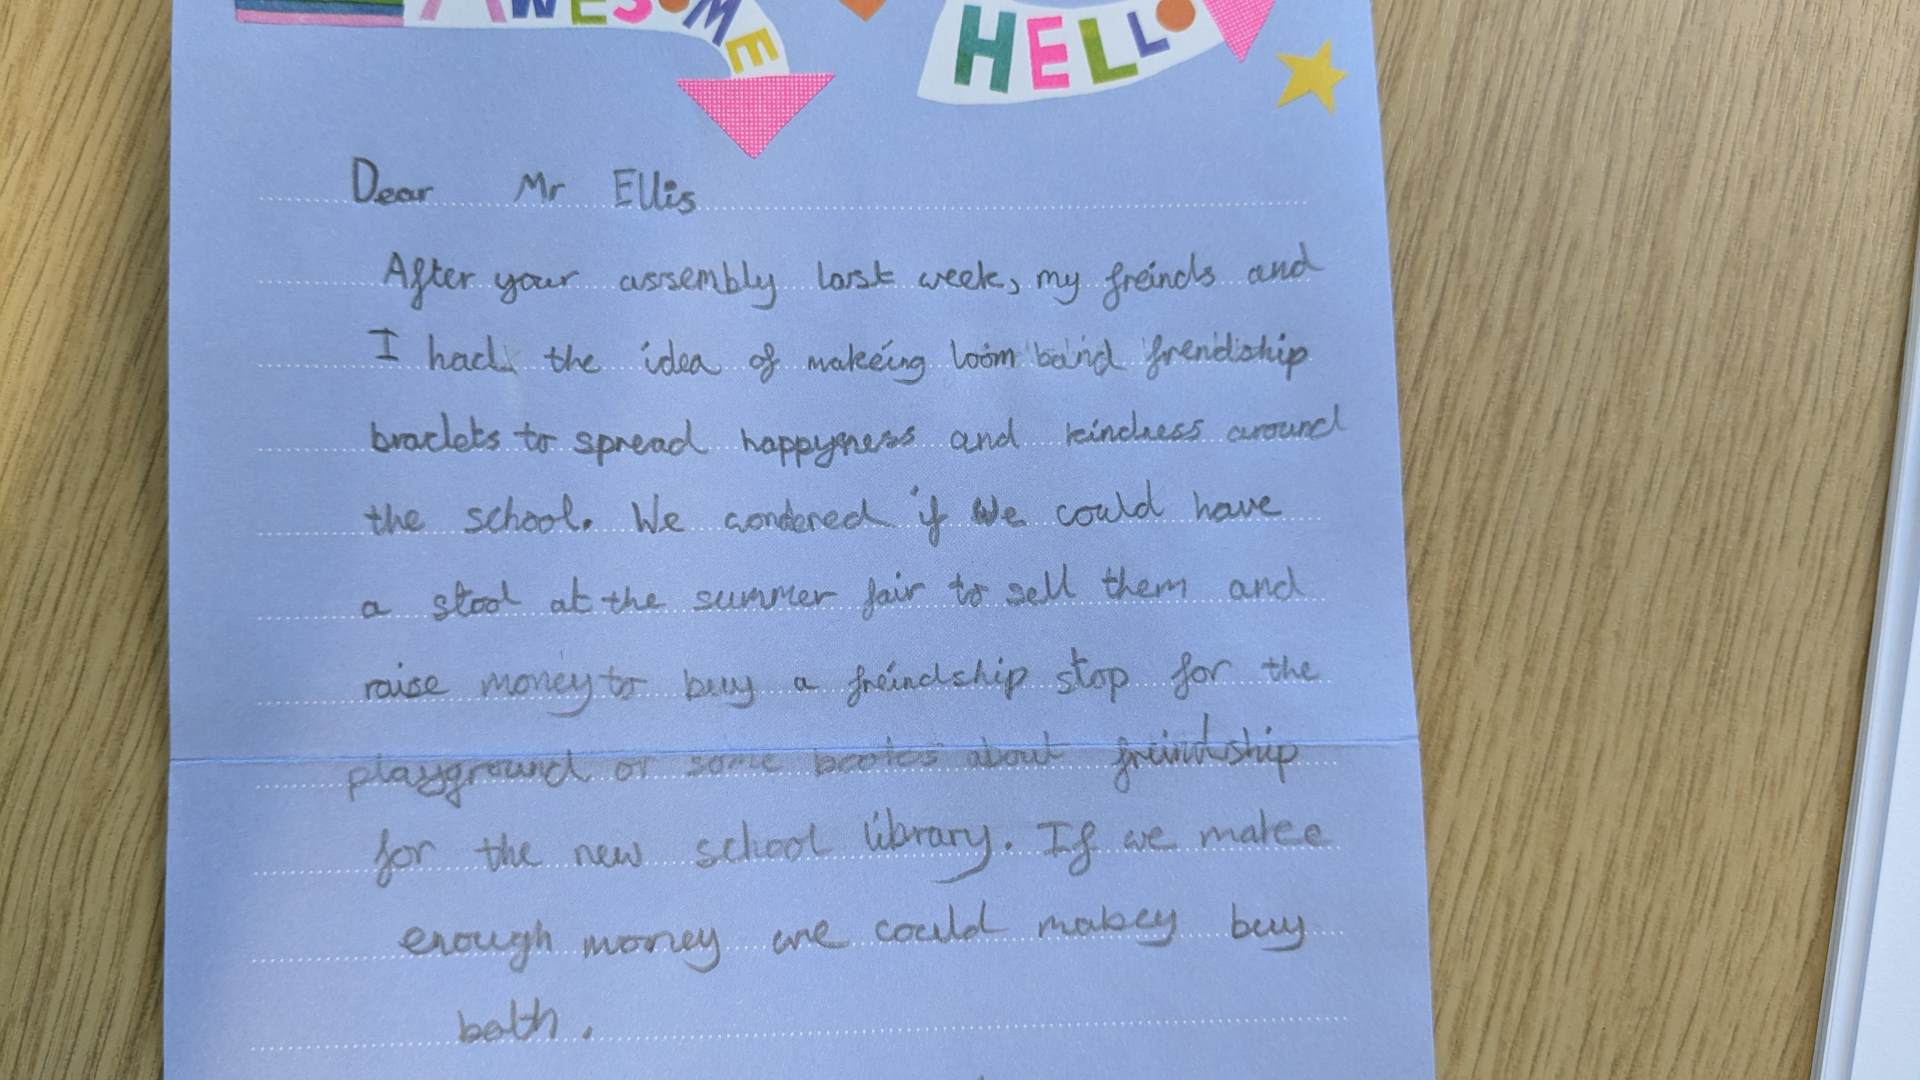 AWESOME
HELLO
Dear Mr Ellis
After your assembly last week, my freinds and
I had the idea of makeing loom band frendship
braclets to spread happyness and kindness around
the school. We wondered if we could have
a stool at the summer fair to sell them and
raise money to buy a freindship stop for the
playground or some books about freindship
for the new school library. If we make
enough money we could mabey buy
both.